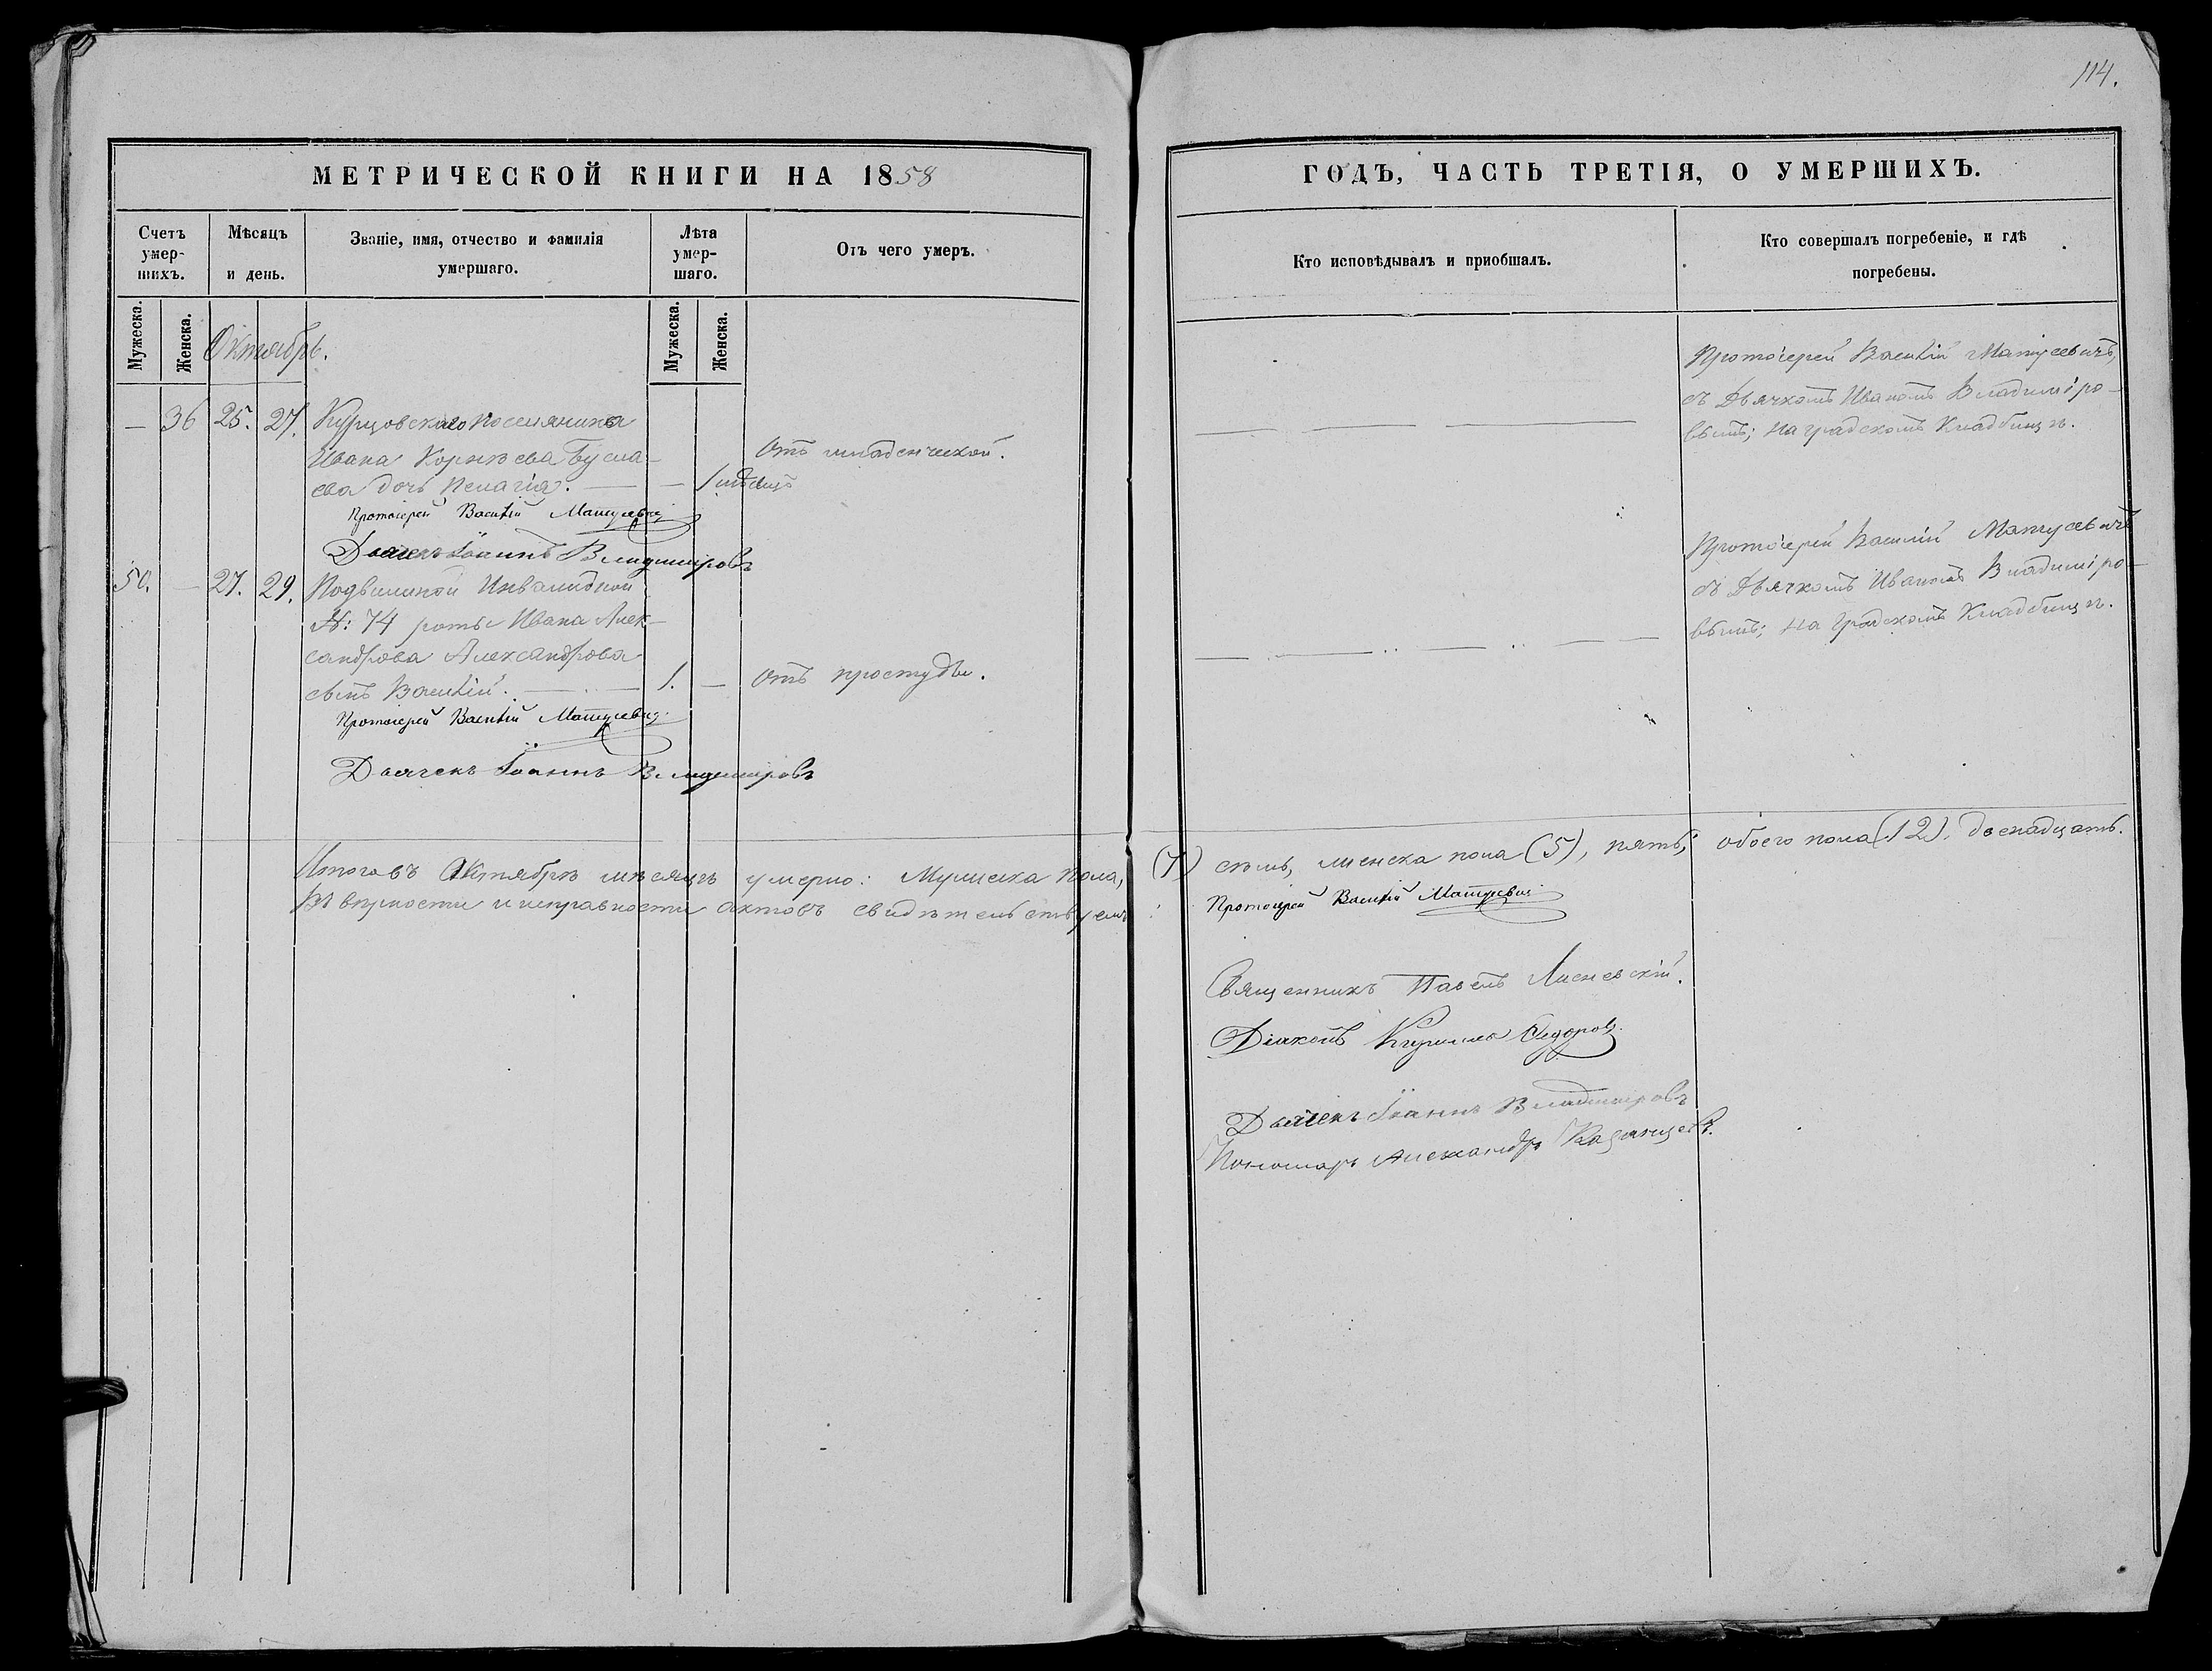 114.
МЕТРИЧЕСКОЙ КНИГИ НА 1858
ГОДЪ, ЧАСТЬ ТРЕТІЯ, О УМЕРШИХЪ.
Счетъ умер-шихъ.
Мѣсяцъ и день.
Званіе, имя, отчество и фамилія умершаго.
Лѣта умер-шаго.
Отъ чего умеръ.
Кто исповѣдывалъ и приобшалъ.
Кто совершалъ погребеніе, и гдѣ погребены.
Мужеска.
Женска.
Октябрь.
Мужеска.
Женска.
— 36 25. 27. Курцовскаго поселянина
Ивана Корнѣева Бусла-
ева дочь Пелагія. — — 1 мѣсяцъ
Отъ младенческой.
Протоіерей Василій Матусевичъ
съ Дьячкомъ Иваномъ Владиміро-
вымъ; на градскомъ кладбищѣ.
Протоіерей Василій Матусевичъ
Дьячекъ Іоаннъ Владиміровъ
50. — 27. 29. Подвижной Инвалидной
№: 74 роты Ивана Алек-
сандрова Александрова
сынъ Василій. — 1. — Отъ простуды.
Протоіерей Василій Матусевичъ
съ Дьячкомъ Иваномъ Владиміро-
вымъ; на градскомъ кладбищѣ.
Протоіерей Василій Матусевичъ
Дьячекъ Іоаннъ Владиміровъ
Итого въ Октябрѣ мѣсяцѣ умерло: Мужеска пола, (7) семь, женска пола (5), пять; обоего пола (12), двенадцать.
Въ вѣрности и исправности актовъ свидѣтельствуемъ:
Протоіерей Василій Матусевичъ
Священникъ Павелъ Лисневскій.
Діаконъ Кириллъ Ѳедоровъ
Дьячекъ Іоаннъ Владиміровъ
Пономарь Александръ Казанцевъ.